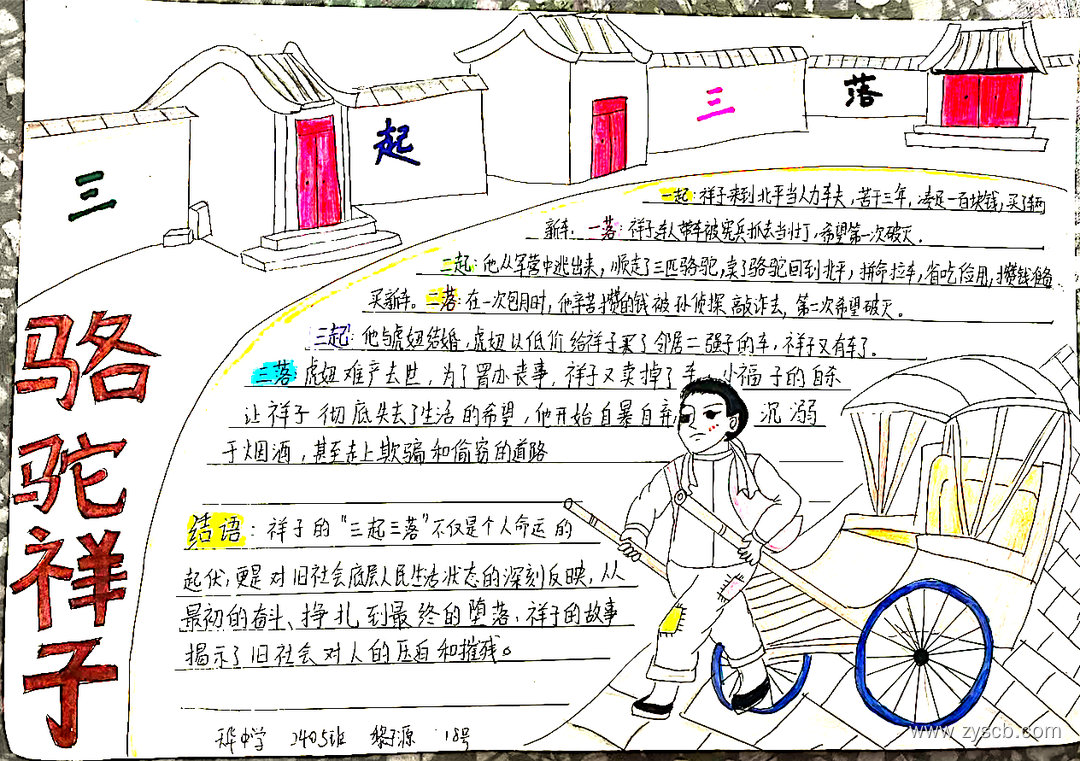 三起三落
骆驼祥子
一起：祥子来到北平当人力车夫，苦干三年，凑足一百块钱，买了辆
新车。一落：祥子连人带车被宪兵抓去当壮丁，希望第一次破灭。
二起：他从军营中逃出来，顺走了三匹骆驼，卖了骆驼回到北平，拼命拉车，省吃俭用，攒钱准备
买新车。二落：在一次包月时，他辛苦攒的钱被孙侦探敲诈去，第一次希望破灭。
三起：他与虎妞结婚，虎妞以低价给祥子买了邻居二强子的车，祥子又有车了。
三落 虎妞难产去世，为了置办丧事，祥子又卖掉了车，小福子的自杀
让祥子彻底失去了生活的希望，他开始自暴自弃，沉溺
于烟酒，甚至走上欺骗和偷窃的道路
结语：祥子的“三起三落”不仅是个人命运的
起伏，更是对旧社会底层人民生活状态的深刻反映，从
最初的奋斗、挣扎到最终的堕落，祥子的故事
揭示了旧社会对人的压迫和摧残。
中学 2405班 黎源 18号
www.zyscb.com